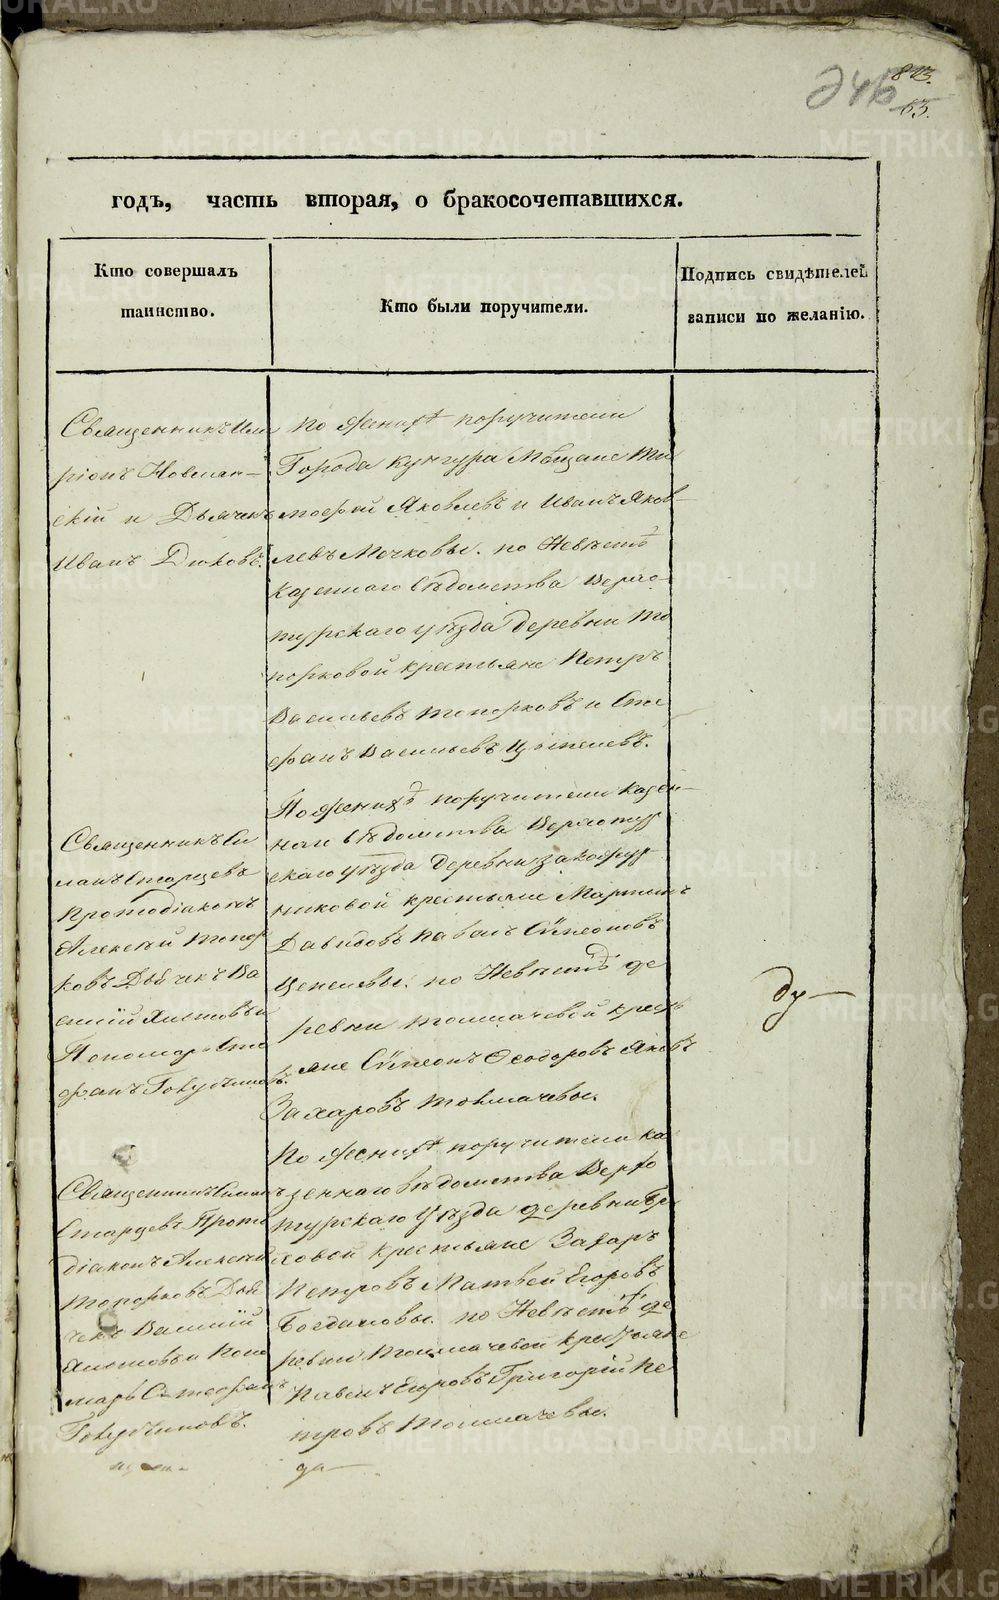 246
823.
63.
годъ, часть вторая, о бракосочетавшихся.
Кто совершалъ
таинство.
Кто были поручители.
Подпись свидѣтелей
записи по желанію.
Священникъ Ила
ріонъ
скій и Дьячекъ
Иванъ Дюковъ.
По женихѣ поручители
Города Кунгура Мѣщане Ти
мофей Яковлевъ и Иванъ Яков
левъ Мочковы. по Невѣстѣ
казеннаго вѣдомства Верхо-
турскаго уѣзда деревни То
порковой крестьяне Петръ
Васильевъ Топорковъ и Сте
фанъ Васильевъ
Священникъ Си
м(анъ) Старцевъ
Протодіаконъ
Алексѣй Топор
ковъ Дьячекъ Ва
силій и
Пономарь Сте
фанъ
По женихѣ поручители казен-
наго вѣдомства Верхотур
скаго уѣзда деревни
никовой крестьяне Мартинъ
Давидовъ Павелъ Сѵмеоновъ
по Невѣстѣ де
ревни Толмачевой кресть
яне Сѵмеонъ Ѳеодоровъ Яковъ
Захаровъ Толмачевы.
Священникъ
Старцевъ Прото
діаконъ Алексѣй
Топорковъ Дья
чекъ Василій
и Поно
марь Стефанъ
По женихѣ поручители ка
зеннаго вѣдомства Верхо
турскаго уѣзда деревни
ховой крестьяне Захаръ
Петровъ Матвей Егоровъ
Богдановы. по Невѣстѣ де
ревни Толмачевой крестьяне
Павелъ Егоровъ Григорій Пе
тровъ Толмачевы.
METRIKI.GASO-URAL.RU